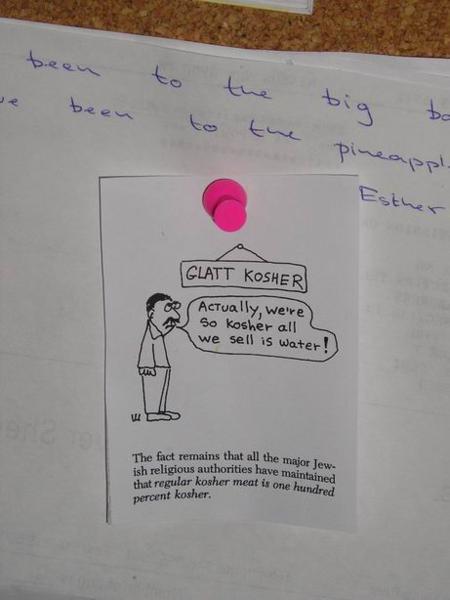 been to the big
been to the
Esther
GLATT KOSHER
Actually, we're
so kosher all
we sell is water!
The fact remains that all the major Jew-
ish religious authorities have maintained
that regular kosher meat is one hundred
percent kosher.